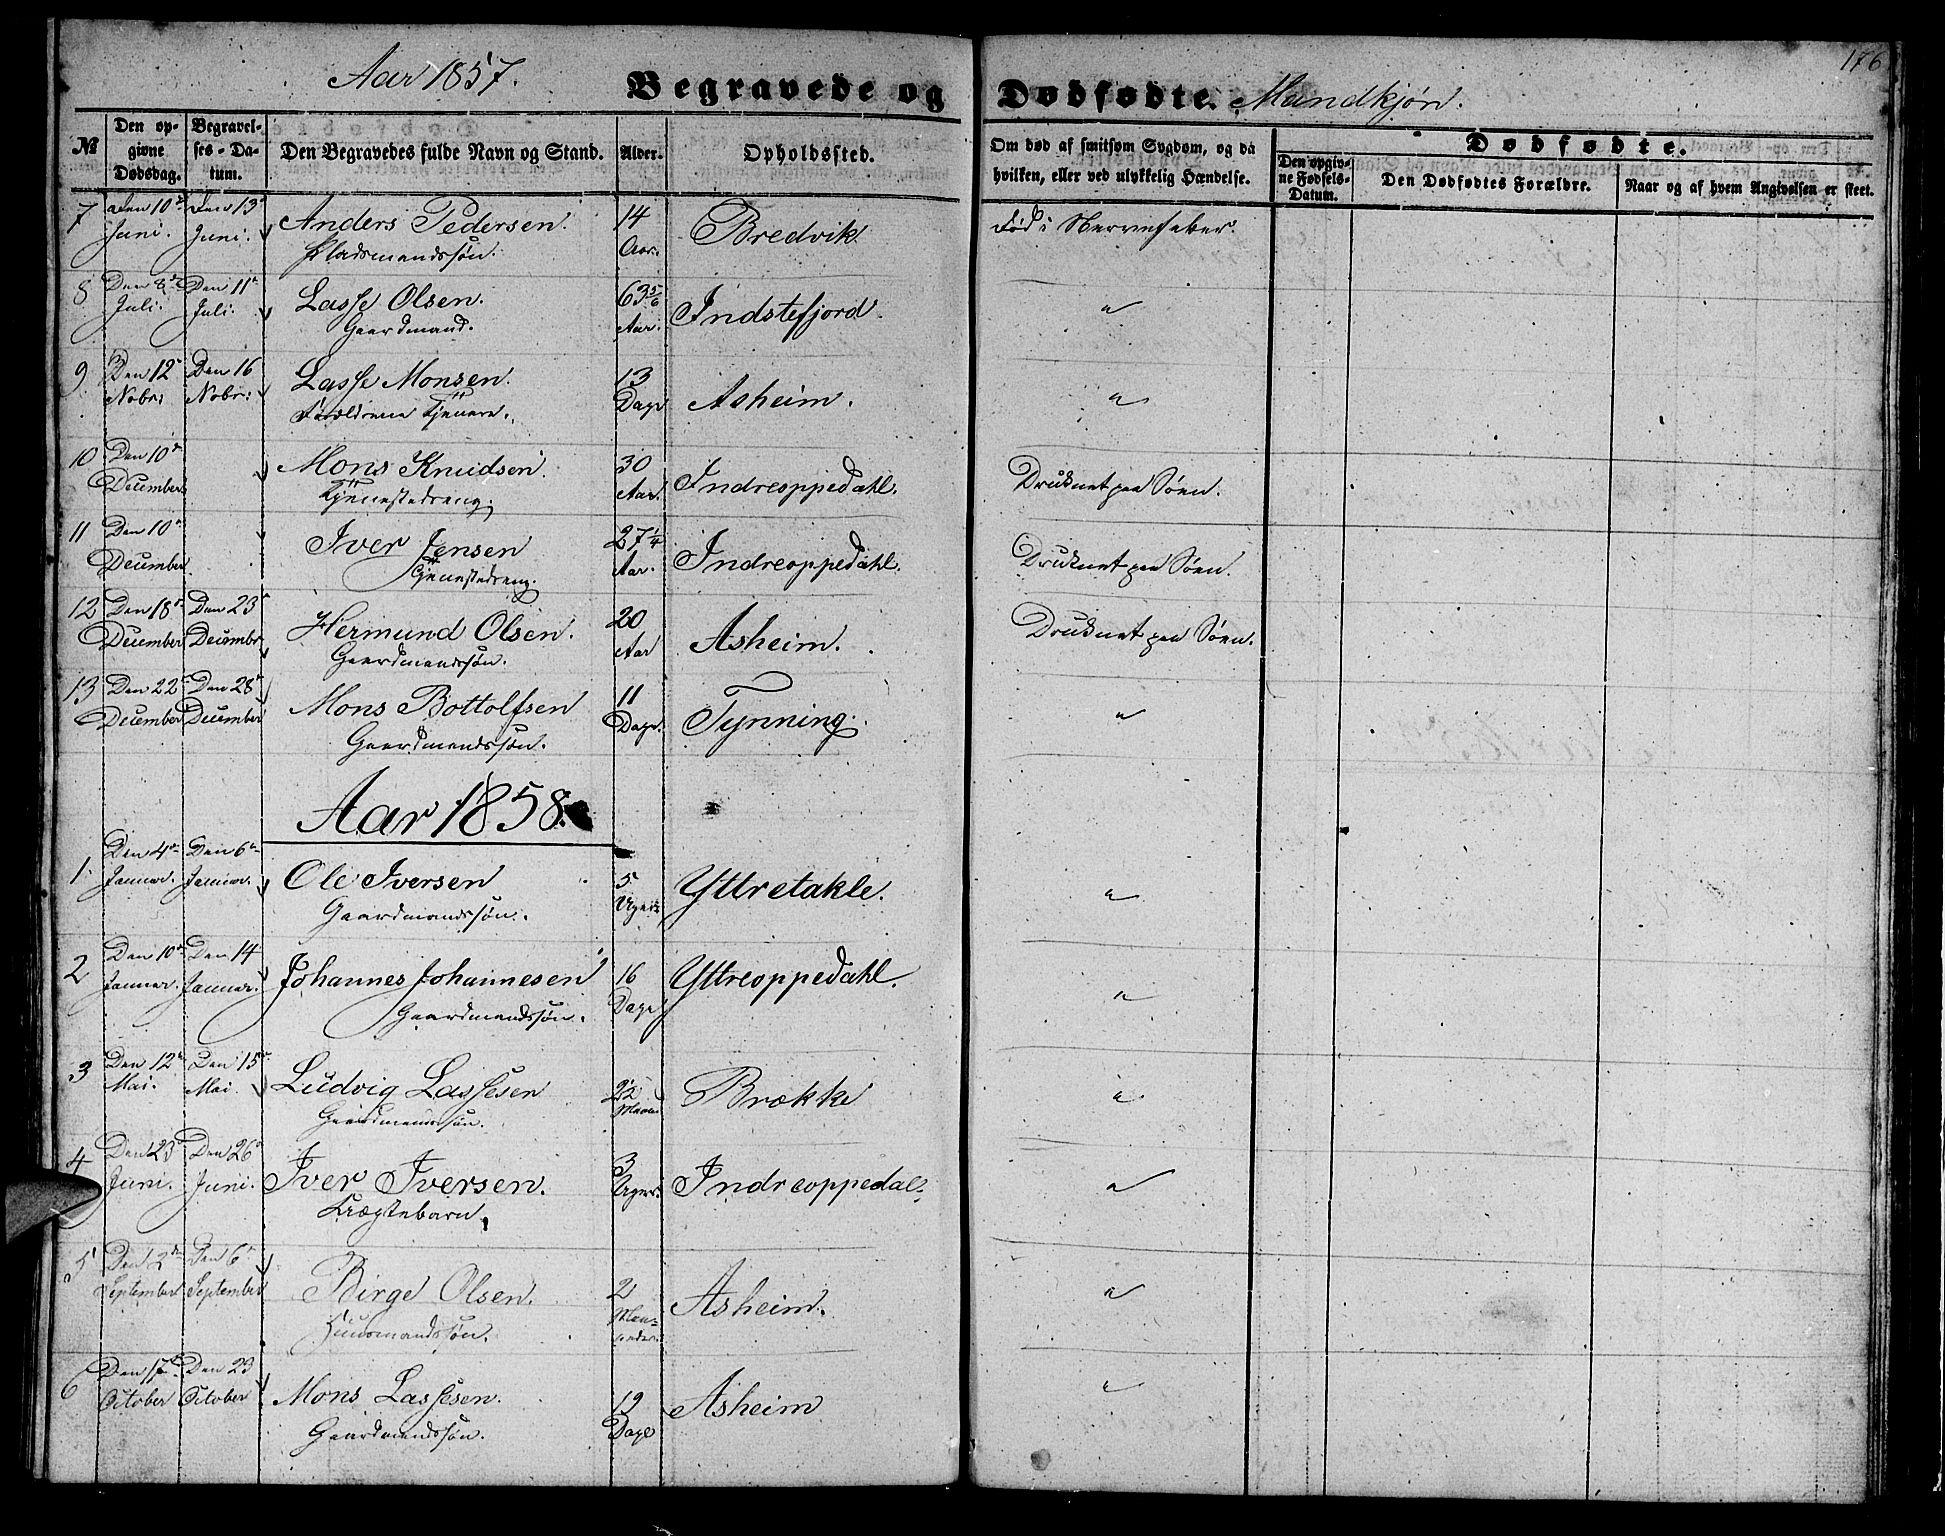 176
Aar 1857.
Begravede og Dødfødte. Mandkjøn.
№
Den opgivne Dødsdag.
Begravelses-Datum.
Den Begravedes fulde Navn og Stand.
Alder.
Opholdssted.
Om død af smitsom Sygdom, og da hvilken, eller ved ulykkelig Hændelse.
Dødfødte.
Den opgivne Fødsels-Datum.
Den Dødfødtes Forældre.
Naar og af hvem Angivelsen er skeet.
7 Den 10de Den 13de Anders Pedersen. 14 Bredvik Død i Nervefeber.
Juni. Juni. Pladsmandssøn. Aar.
8 Den 8de Den 11te Lasse Olsen. 63 5/6 Indstefjord. "
Juli. Juli. Gaardmand. Aar.
9 Den 12te Den 16 Lasse Monsen. 13 Asheim. "
Nobr: Nobr: Forældrene Tjenere. Dage
10 Den 10de Mons Knudsen 30 Indreoppedahl. Druknet paa Søen.
December Tjenestedreng. Aar.
11 Den 10de Iver Jensen 27 1/4 Indreoppedahl. Druknet paa Søen.
December Tjenestedreng. Aar.
12 Den 18de Den 23de Hermund Olsen. 20 Asheim. Druknet paa Søen.
December December Gaardmandssøn. Aar
13 Den 22de Den 28de Mons Bottolfsen 11 Tynning. "
December December Gaardmandssøn. Dage.
Aar 1858.
1 Den 4de Den 6te Ole Iversen 5 Yttretakle. "
Januar. Januar. Gaardmandssøn. Uger
2 Den 10de Den 14 Johannes Johannesen 16 Yttreoppedahl. "
Januar. Januar. Gaardmandssøn. Dage
3 Den 12te Den 15de Ludvig Lassesen 2 1/2 Brække "
Mai. Mai. Gaardmandssøn. Maaned
4 Den 23de Den 26de Iver Iversen. 3 Indreoppedal. "
Juni. Juni. Uægtebarn. Uger.
5 Den 2den Den 6te Birge Olsen. 2 Asheim. "
September September Huusmandssøn. Maaneder.
6 Den 17de Den 23 Mons Lassesen. 19 Asheim "
October October Gaardmandssøn. Dage